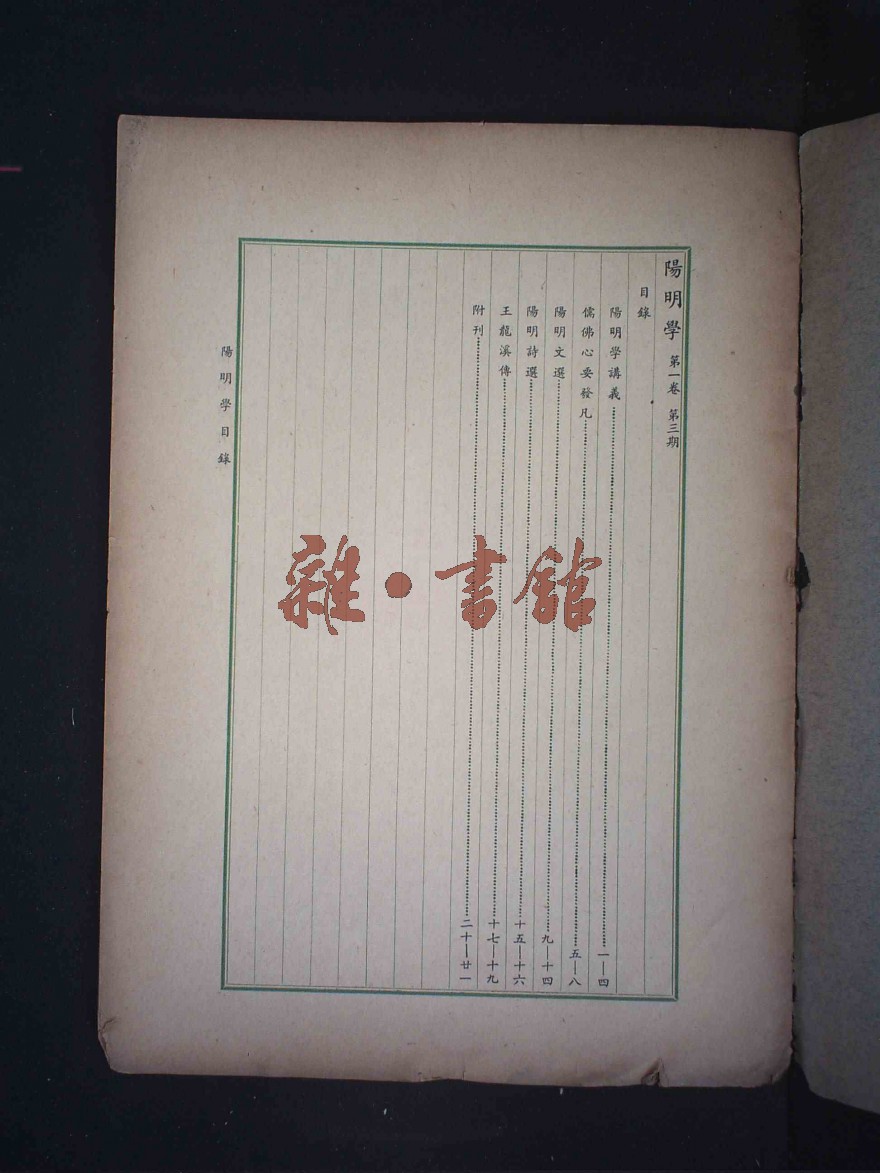 陽明學 第一卷 第三期
目錄
陽明學講義……一—四
儒佛心要發凡……五—八
陽明文選……九—十四
陽明詩選……十五—十六
王龍溪傳……十七—十九
附刊……二十—廿一
陽明學目錄
雜·書館